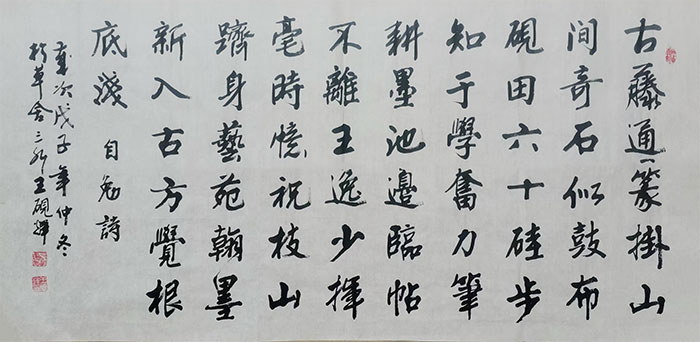 古藤通篆掛山
间奇石似鼓布
硯田六十硅步
知于學奮力筆
耕墨池邊臨帖
不離王逸少揮
毫時憶祝枝山
躋身藝苑翰墨
新入古方覺根
底淺 自勉詩
歲次戊子年仲冬
於草舍 王硯輝